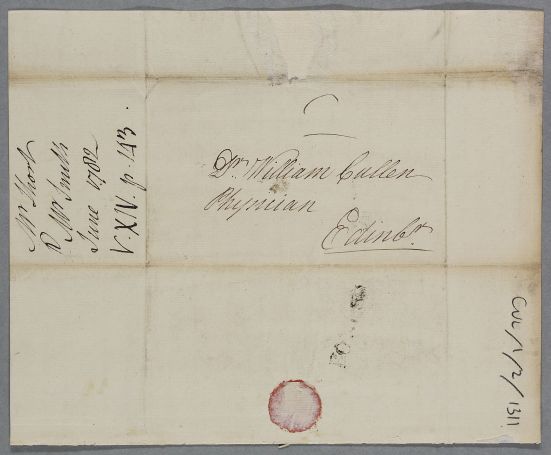 Dr. William Cullen
Physician
Edinbr.
Mr Short
R Mr Smith
June 1782
V. XIV. p. 143.
CUL/1/2/1311